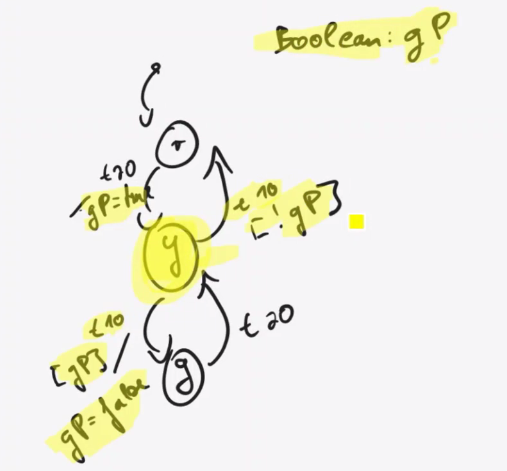 Boolean: gP
r
t20
/gP=true
t10
[!gP]
y
t10
[gP]/
gP=false
t20
g